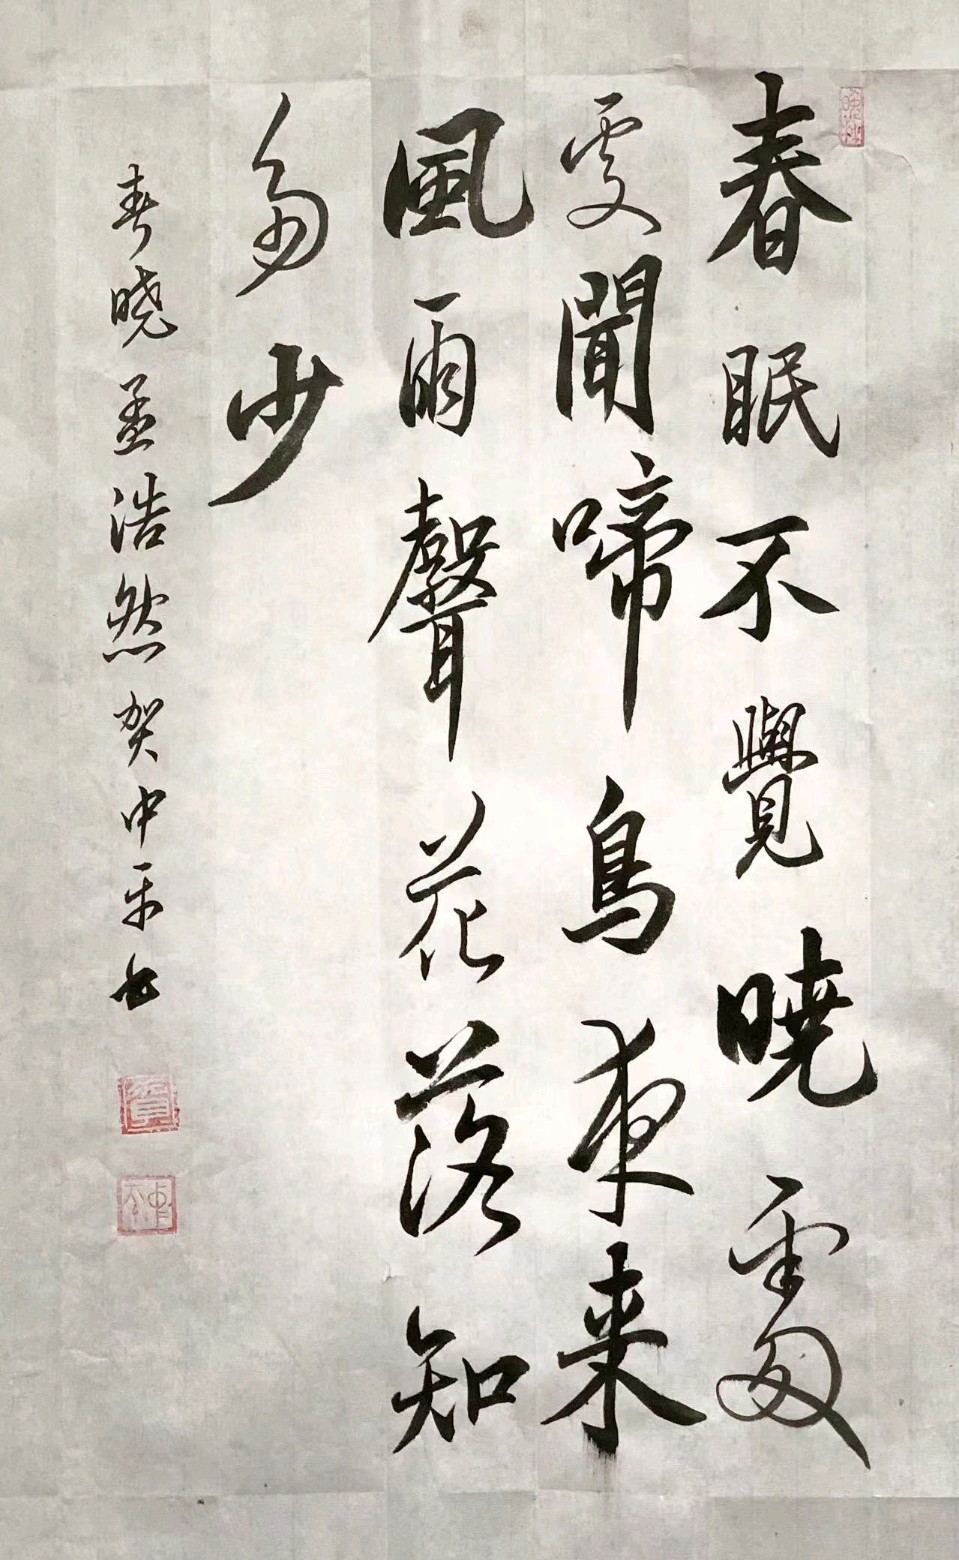 春眠不覺曉處
處聞啼鳥夜来
風雨聲花落知
多少
春晓孟浩然贺中平书